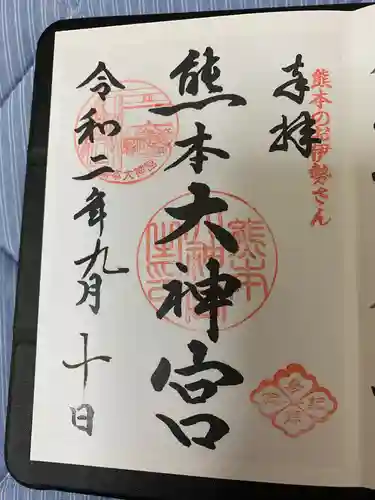 熊本のお伊勢さん
奉拝
熊本大神宮
令和二年九月十日